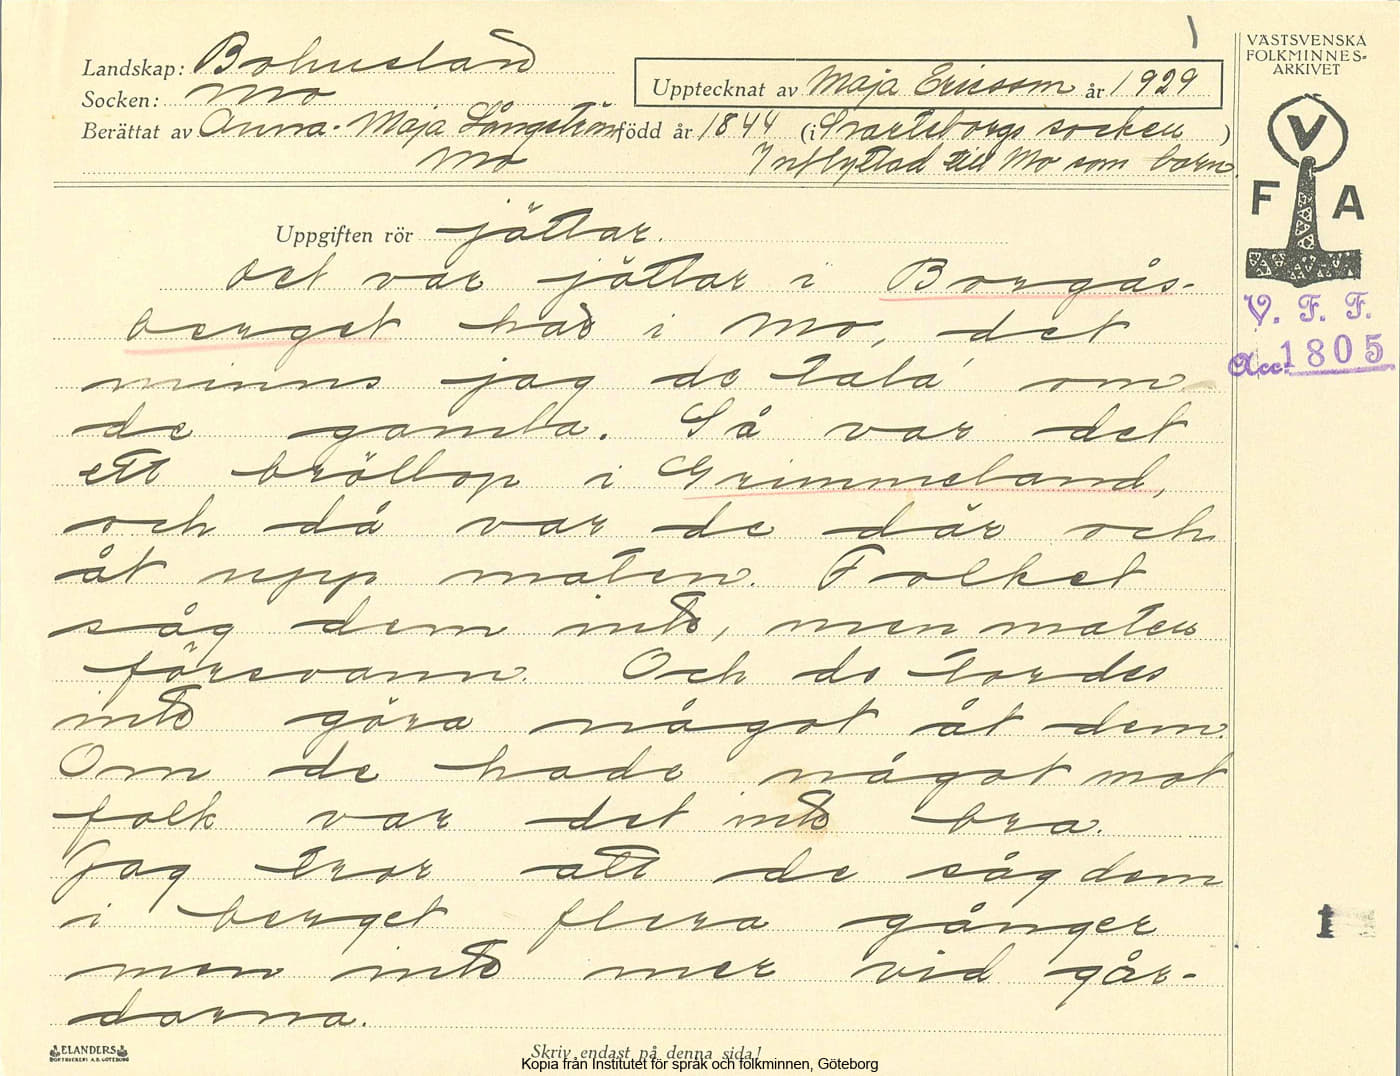 1
VÄSTSVENSKA
FOLKMINNES-
ARKIVET
Landskap: Bohuslän
Socken: Mo
Upptecknat av Maja Ericson år 1929
Berättat av Anna-Maja Långström född år 1844 (i Svarteborgs socken)
Mo Inflyttad till Mo som barn.
V
F A
Uppgiften rör jättar.
Det var jättar i Borgås-
berget här i Mo, det
minns jag de tala' om
de gamla. Så var det
ett bröllop i Grimmeland,
och då var de där och
åt upp maten. Folket
såg dem inte, men maten
försvann. Och de tordes
inte göra något åt dem.
Om de hade något mot
folk var det inte bra.
Jag tror att de såg dem
i berget flera gånger
men inte mer vid går-
darna.
V. F. F.
Acc. 1805
1
ELANDERS
BOKTRYCKERI A.B. GÖTEBORG
Skriv endast på denna sida!
Kopia från Institutet för språk och folkminnen, Göteborg